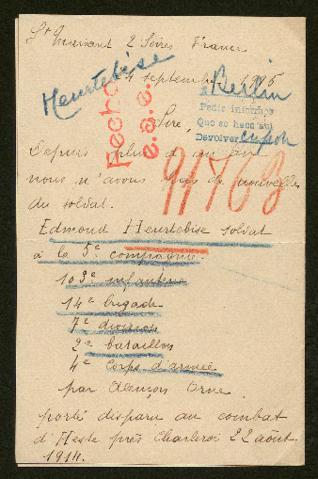 St Maixent 2 Sèvres France
Heurtebise
4 septembre 1915
Berlin
Pedir informes
Que se hece aqui
Devolver
Fecho
e.a.e.
Sire,
Depuis plus d'un an
nous n'avons pas de nouvelles
du soldat.
91763
Edmond Heurtebise soldat
à la 5e compagnie
103e infanterie
14e brigade
7e division
2e bataillon
4e corps d'armée
par Alençon Orne.
porté disparu au combat
d'Heste près Charleroi 22 août
1914.